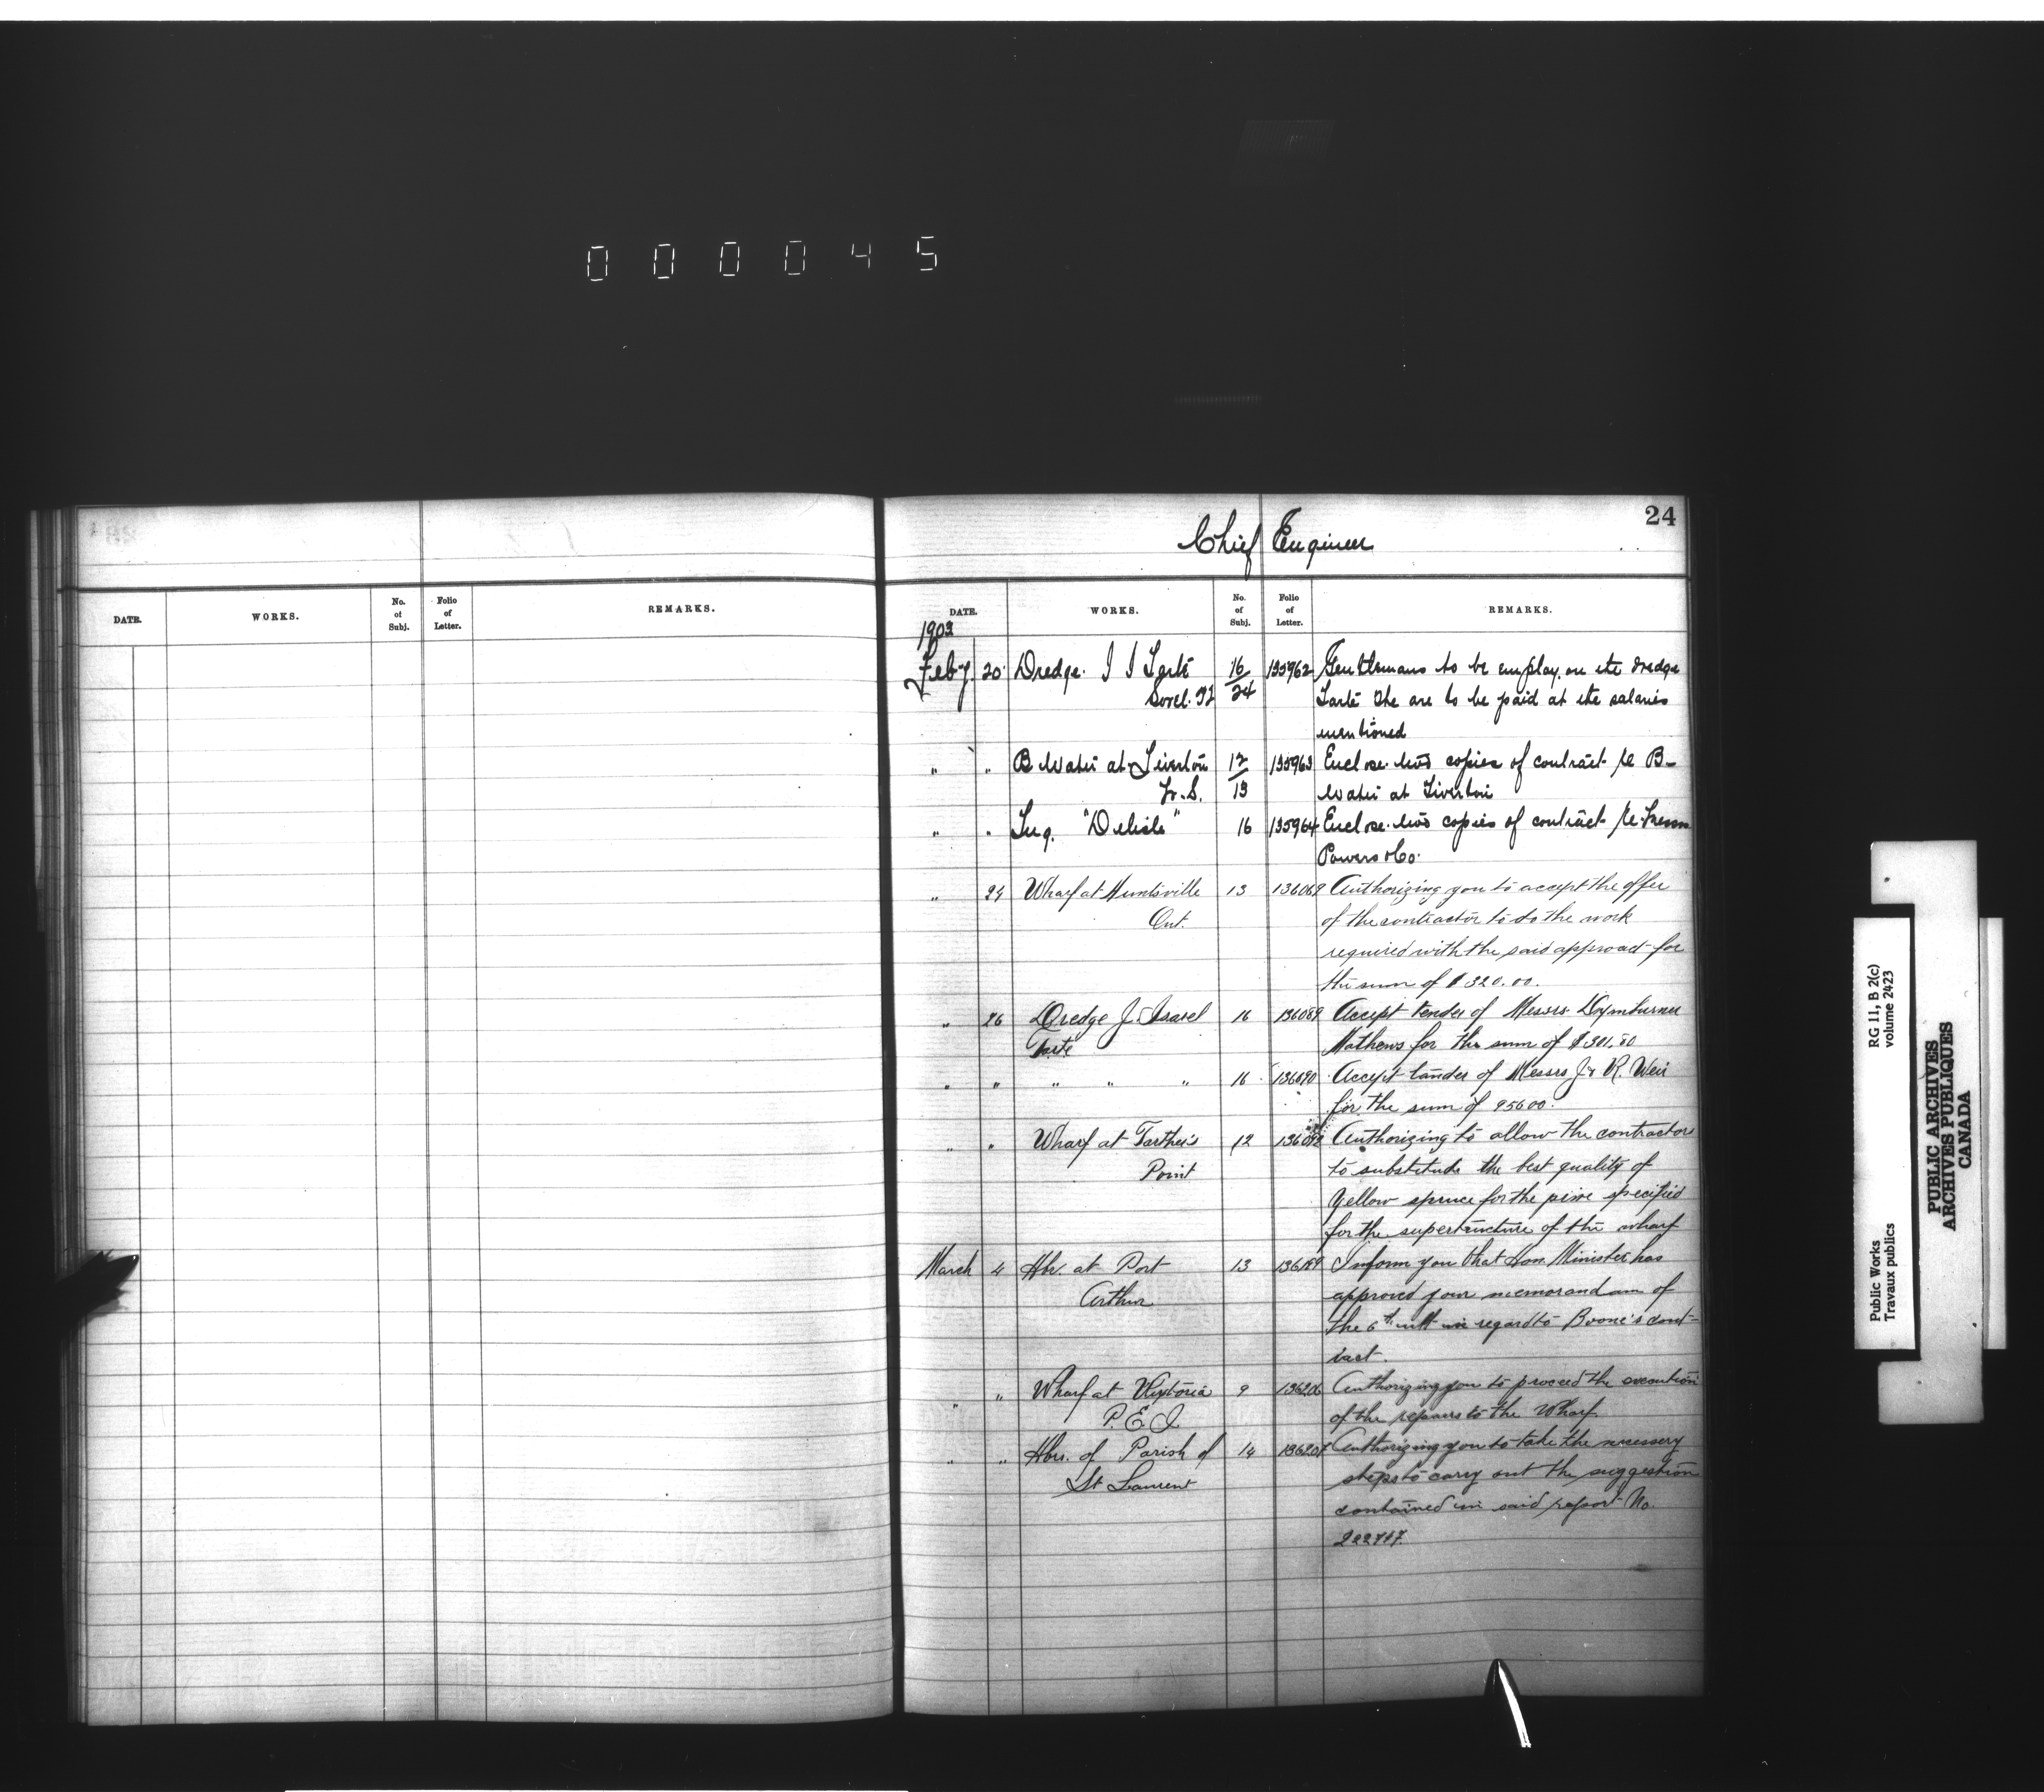 000045
24
Chief Engineer
DATE. WORKS. No. of Subj. Folio of Letter. REMARKS.
DATE. WORKS. No. of Subj. Folio of Letter. REMARKS.
1903
Feby. 20 Dredge. I I Tarte 16/24 135962 Gentlemans to be employ. on the dredge
Sorel. Tarte the are to be paid at the salaries
mentioned
" " B Water at Tiverton 12/13 135963 Enclose two copies of contract re B-
N. S. Water at Tiverton
" " Tug. "Delisle" 16 135964 Enclose two copies of contract re
Powers & Co.
" 24 Wharf at Huntsville 13 136069 Authorizing you to accept the offer
Ont. of the contractor to do the work
required with the said approach for
the sum of $320.00.
" 26 Dredge J. Israel 16 136089 Accept tender of Messrs
Tarte Mathews for the sum of $301.80
" " " " " 16 136090 Accept tander of Messrs J & R. Weir
for the sum of 95600.
" " Wharf at 12 Authorizing to allow the contractors
Point to substitude the best quality of
Yellow spruce for the pine specified
for the superstructure of the wharf
March 4 Hbr. at Port 13 136189 Inform you that Hon. Minister has
Arthur approved your memorandum of
the 6th ult in regard to Boone's cont-
ract.
" " Wharf at Victoria 9 136206 Authorizing you to proceed the execution
P. E. I. of the repairs to the Wharf
" " Hbr. of Parish of 14 136207 Authorizing you to take the necessery
St Laurent steps to carry out the suggestion
contained in said report No.
222747.
RG 11, B 2(c)
volume 2423
Public Works
Travaux publics
PUBLIC ARCHIVES
ARCHIVES PUBLIQUES
CANADA